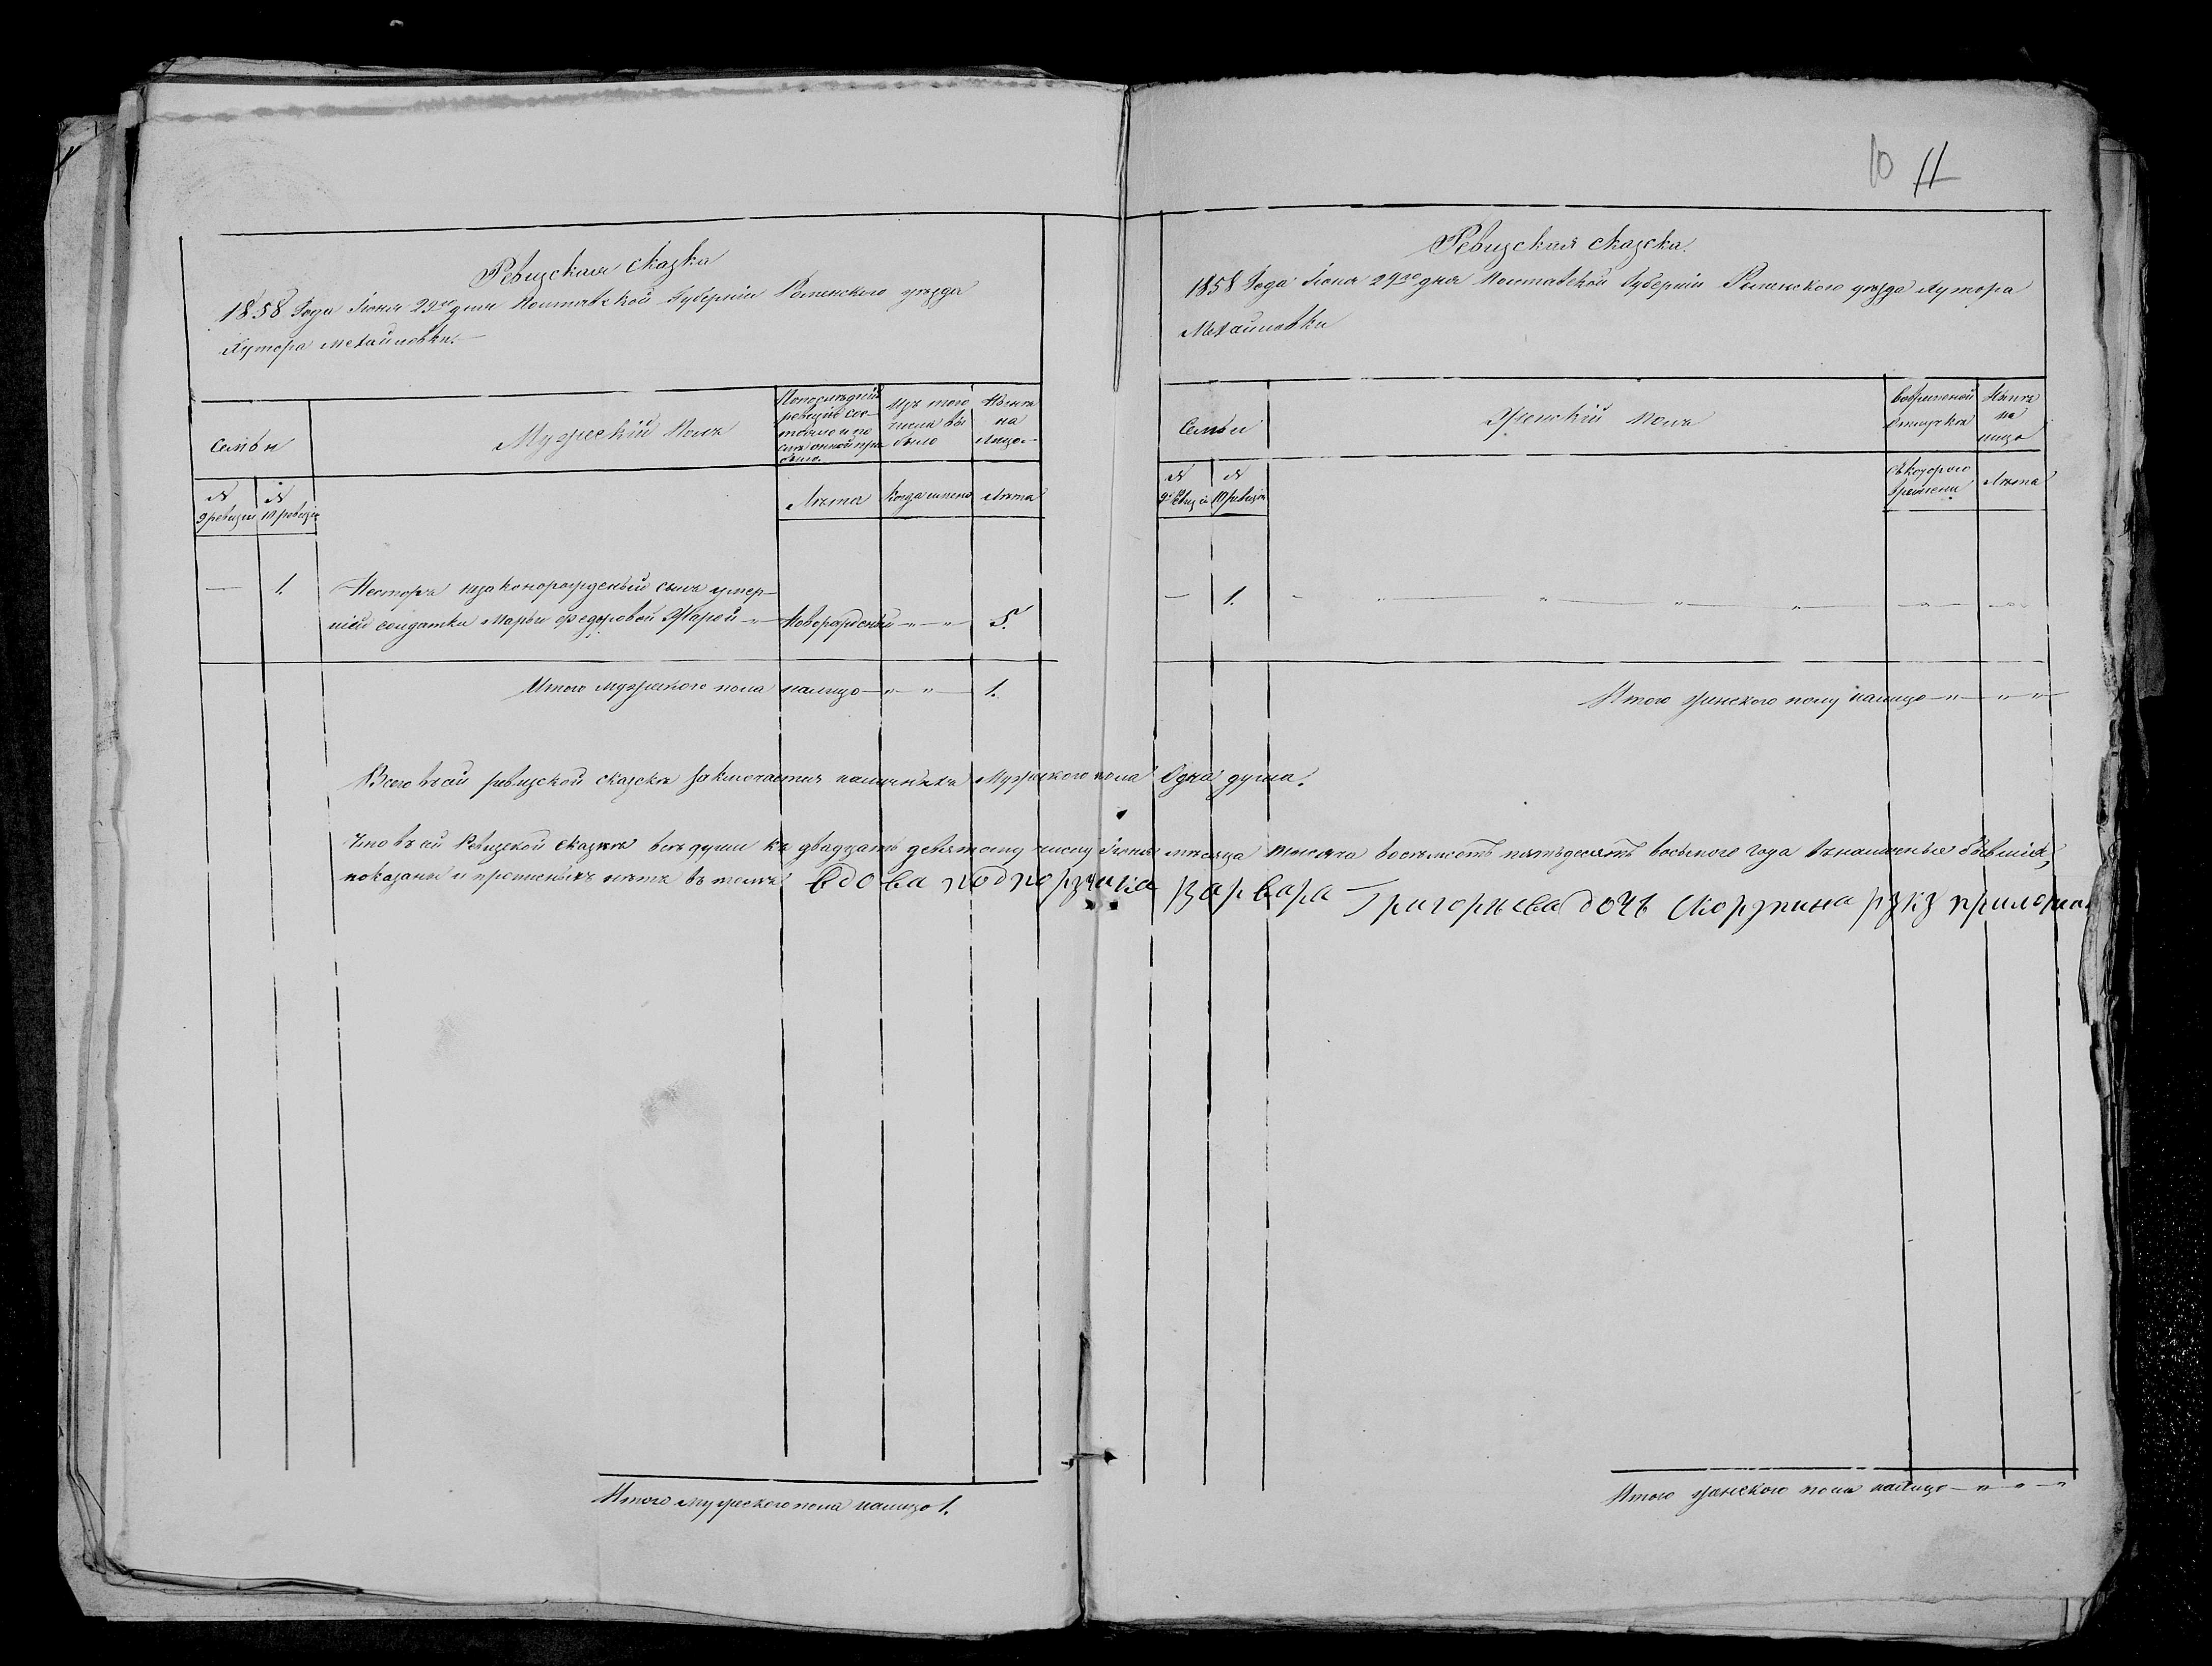 10 11
Ревизская сказка
1858 Года Июня 29го дня Полтавской Губерніи Роменского уезда
Хутора Михайловки.
Семьи
Мужескій Полъ
По последній ревизіи состояло и после оной прибыло.
Изъ того числа выбыло
Ныне на лицо
№ 9 ревизіи
№ 10 ревизіи
Лета
Когда имено
Лета
— 1. Несторъ незаконорожденый сынъ умер-
шей солдатки Марьи Федоровой Жарой — Новорожденый — " — " — 5.
Итого мужеского пола налицо — " — " — 1.
Ревизская сказка.
1858 Года Июня 29го дня Полтавской Губерніи Роменского уезда Хутора
Михайловки
Семьи
Женскій Полъ
Вовременой отлучке
Ныне на лицо
№ 9 ревизіи
№ 10 ревизіи
Съ которого времени
Лета
— 1. — " — " — " — " — " — "
Итого женского полу налицо — " — " — "
Всего въ сей ревизской сказке заключается наличныхъ Мужеского пола Одна душа.
Что въ сей Ревизской сказке все души къ двадцать девятому числу Июня месяца тысяча восемьсотъ пятьдесятъ восьмого года въ наличные бывшія,
показаны и прописныхъ нетъ въ томъ вдова подпорзчика варвара Григорьева дочь скорзпина рзкз приложила
Итого мужеского пола налицо 1.
Итого женского пола налицо — " — " — "